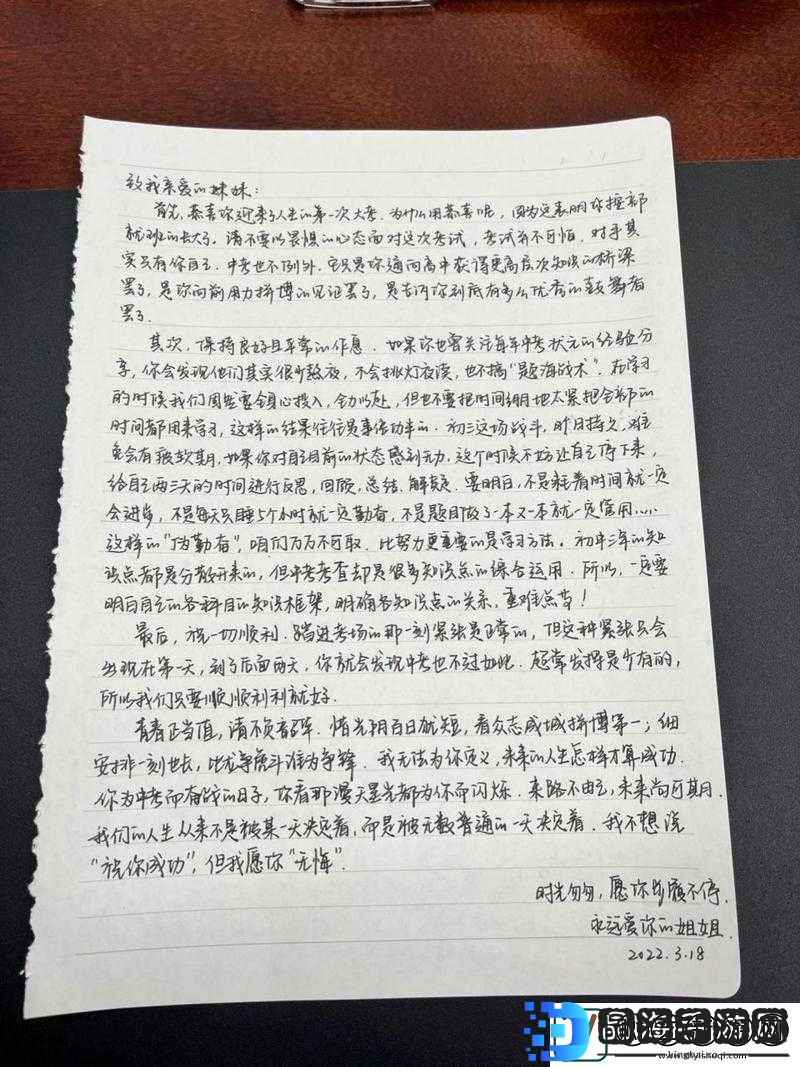 致我亲爱的妹妹：
首先，恭喜你迎来了人生的第一次大考。为什么用恭喜呢，因为这表明你按部
就班的长大了。请不要以畏惧的心态面对这次考试，考试并不可怕，对手其
实只有你自己。中考也不例外，它只是你通向高中获得更高层次知识的桥梁
罢了，是你向前用力拼搏的见证罢了，是告诉你到底有多么优秀的鼓舞者
罢了。
其次，保持良好且平常的作息。如果你也曾关注每年中考状元的经验分
享，你会发现他们其实很少熬夜，不会挑灯夜读，也不搞“题海战术”。在学习
的时候我们固然要全身心投入，全力以赴，但也不要把时间绷地太紧把全部的
时间都用来学习，这样的结果往往是事倍功半的。初三这场战斗，时日持久，难
免会有疲软期，如果你对自己目前的状态感到无力，这个时候不妨让自己停下来，
给自己两三天的时间进行反思，回顾，总结，解疑。要明白，不是耗着时间就一定
会进步，不是每天只睡5个小时就一定勤奋，不是题目做了一本又一本就一定管用……
这样的“伪勤奋”，咱们万万不可取。比努力更重要的是学习方法。初中三年的知
识点都是分散开来的，但中考考查却是很多知识点的综合运用。所以，一定要
明白自己的各科目的知识框架，明确各知识点的关系，重难点等！
最后，祝一切顺利。踏进考场的那一刻紧张是正常的，但这种紧张只会
出现在第一天，到了后面两天，你就会发现中考也不过如此。超常发挥是少有的，
所以我们只要顺顺利利就好。
青春正当值，请不负韶华。惜光阴百日犹短，看众志成城拼搏第一；细
安排一刻也长，比龙争虎斗谁为争锋。我无法为你定义，未来的人生怎样才算成功。
你为中考而奋战的日子，你看那漫天星光都为你而闪烁。来路不由己，未来尚可期。
我们的人生从来不是被某一天决定着，而是被无数普通的一天决定着。我不想说
“祝你成功”，但我愿你“无悔”。
时光匆匆，愿你步履不停。
永远爱你的姐姐。
2022.3.18